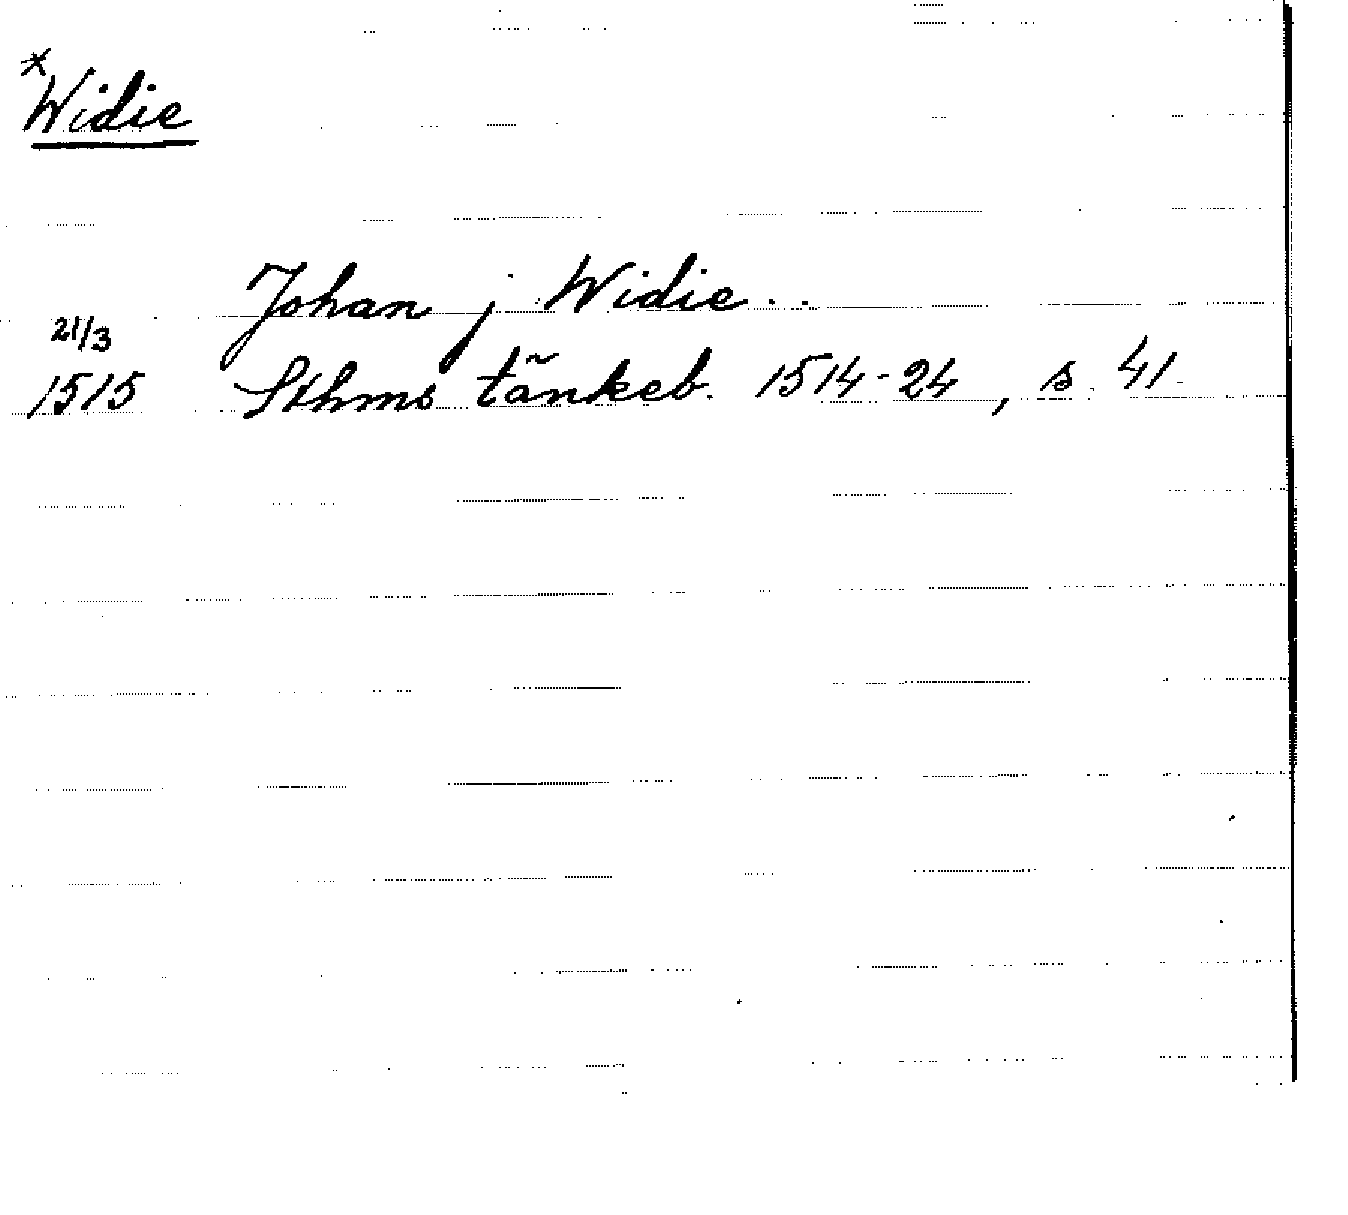 *
Widie
Johan j Widie . .
21/3
1515 Sthms tänkeb. 1514-24, s. 41.